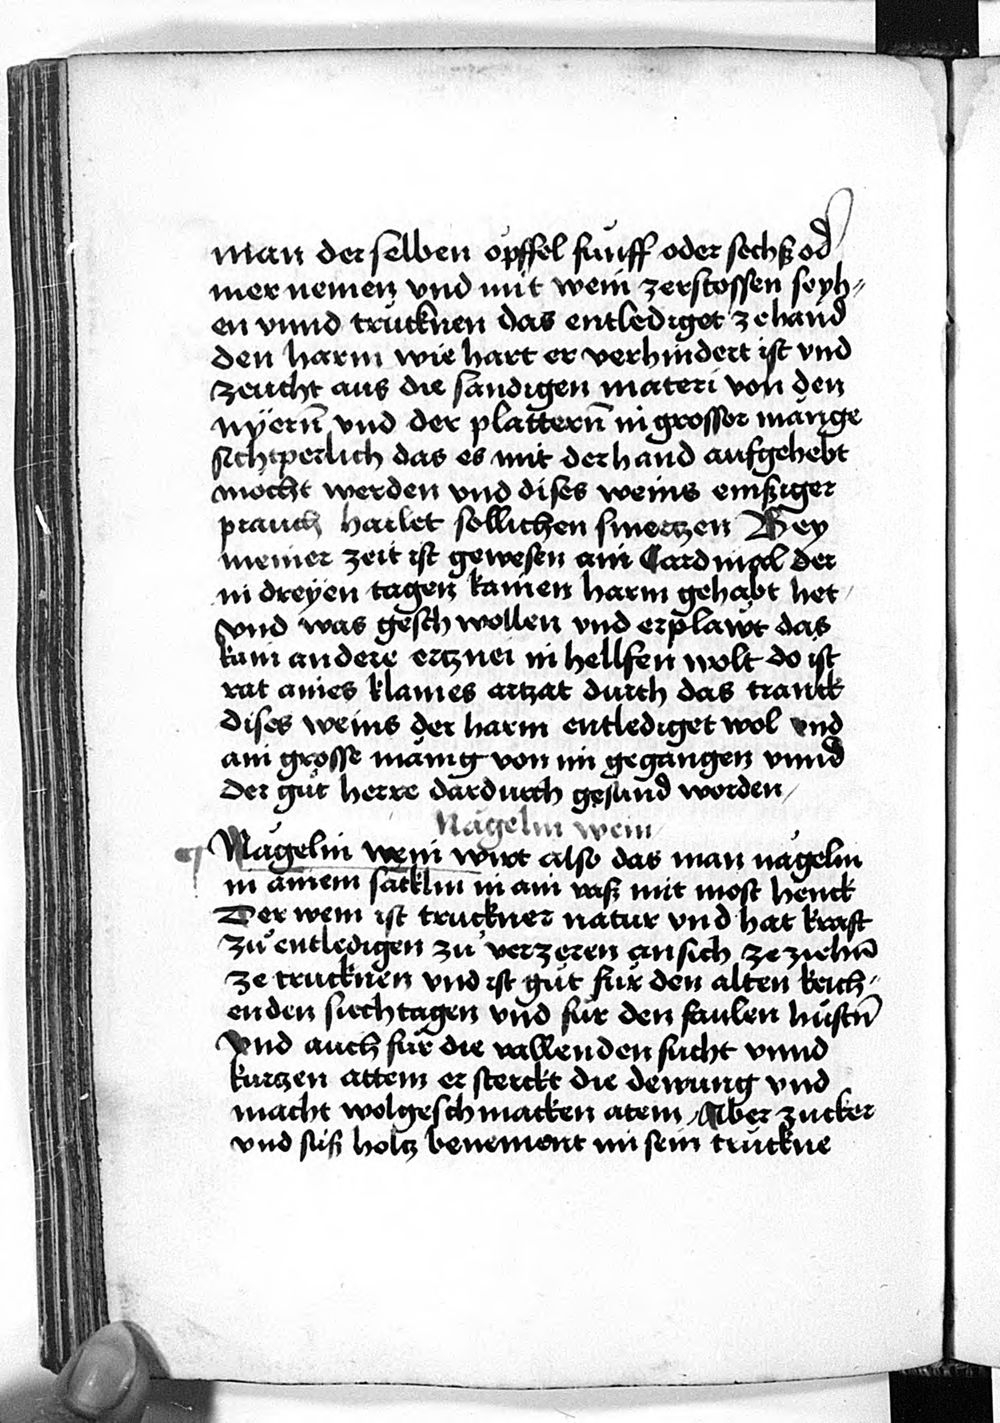 man der selben öpffel fünff oder sechß od̄
mer nemen vnd mit wein zerstossen seyh⸗
en vnnd trücknen das entlediget zehand
den harm wie hart er verhindert ist vnd
zeucht aus die sandigen materi von den
nÿern̄ vnd der plattern̄ in grosser mänge
sichtperlich das es mit der hand aufgehebt
möcht werden vnd dises weins emßiger
prauch hailet sollichen smertzen Bey
meiner zeit ist gewesen ain Cardinal der
in dreÿen tagen kainen harm gehabt het /
vnd was geschwollen vnd erplawt das
kain andere ertznei in hellfen wolt do ist
rat aines klaines artzat durch das tranck
dises weins der harm entlediget wol vnd
ain grosse mänig von im gegangen vnnd
der gůt herre dardurch gesund worden /
Nägelin wein /
Nägelin wein wirt also das man nägelin
in ainem säcklin in ain vaß mit most henck
Der wein ist truckner natur vnd hat kraft
zů entledigen zů verzeren an sich ze ziehn̄
ze trucknen vnd ist gůt für den alten keich⸗
enden siechtagen vnd für den faulen hůstn̄
vnd auch für die vallenden sucht vnnd
kurtzen attem er sterckt die dewung vnd
macht wolgeschmacken atem / Aber zucker
vnd süß holtz benement im sein trückne